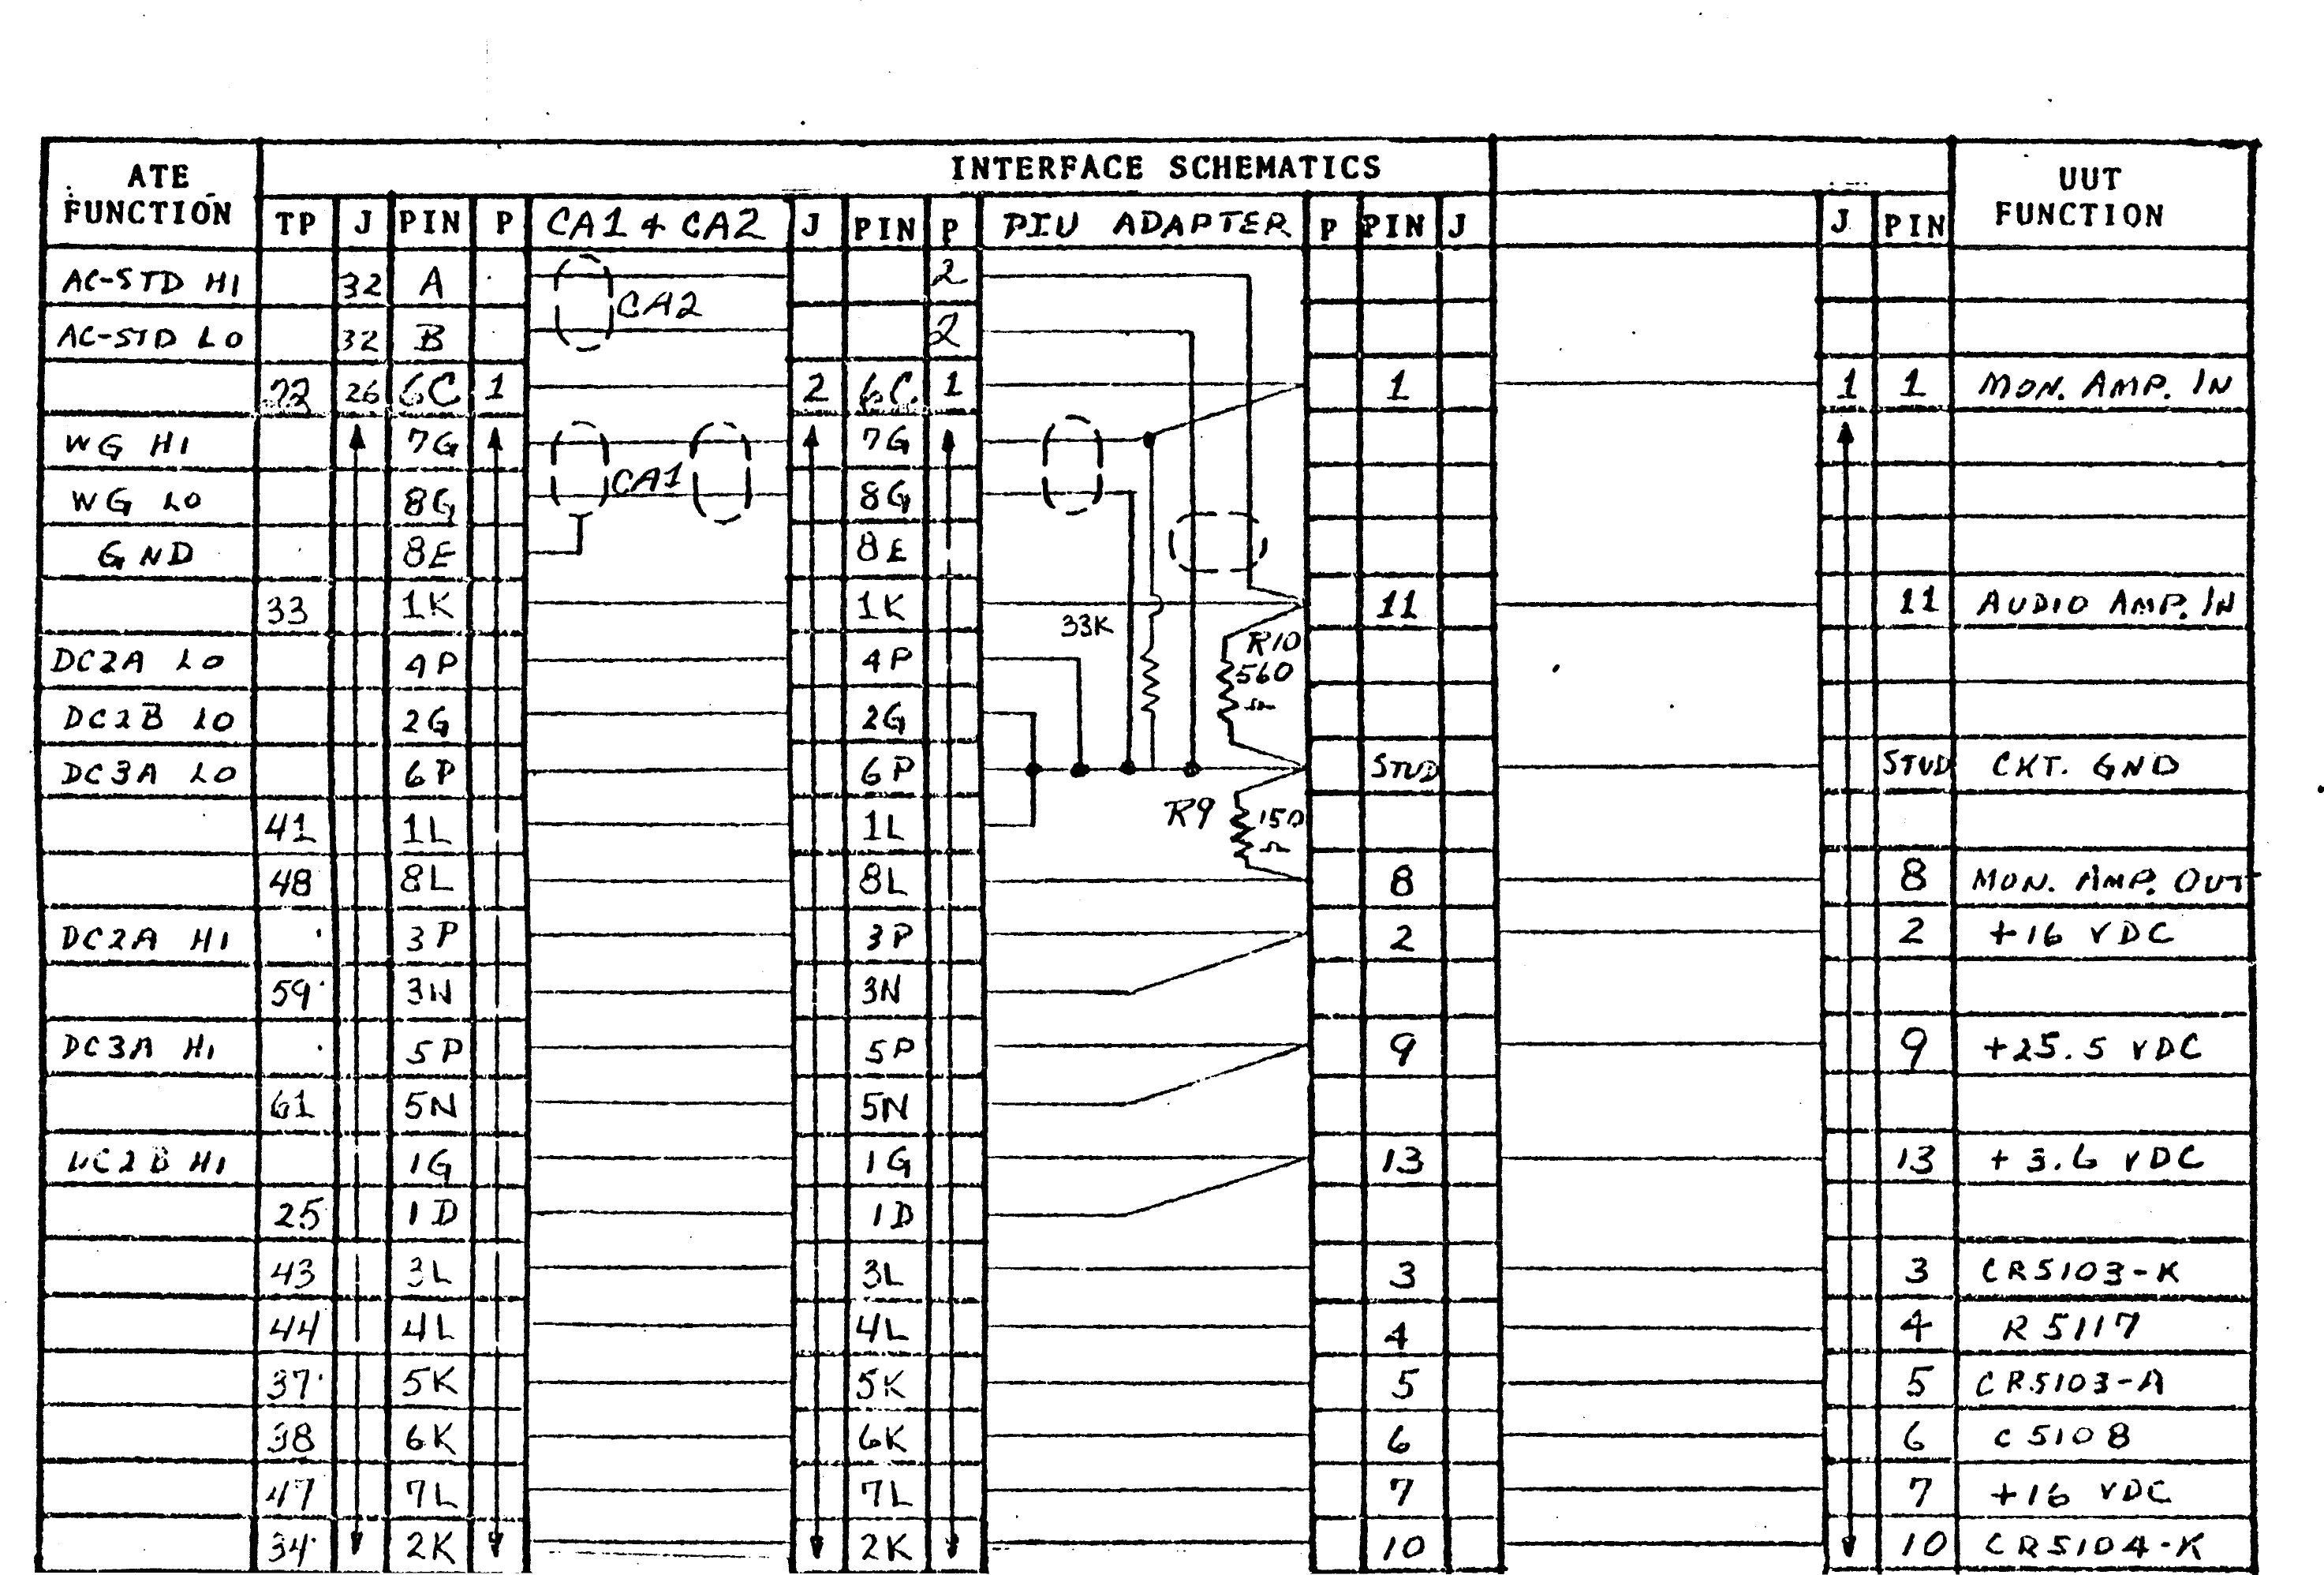 INTERFACE SCHEMATICS
ATE FUNCTION TP J PIN P CA1 & CA2 J PIN P PIU ADAPTER P PIN J J PIN UUT FUNCTION
AC-STD HI 32 A 2
CA2
AC-STD LO 32 B 2
72 26 6C 1 2 6C 1 1 1 1 MON. AMP. IN
WG HI 7G 7G
CA1
WG LO 8G 8G
GND 8E 8E
33 1K 1K 11 11 AUDIO AMP. IN
33K R10
DC2A LO 4P 4P 560
Ω
DC2B LO 2G 2G
DC3A LO 6P 6P STUD STUD CKT. GND
41 1L 1L R9 150
Ω
48 8L 8L 8 8 MON. AMP. OUT
DC2A HI 3P 3P 2 2 +16 VDC
59 3N 3N
DC3A HI 5P 5P 9 9 +25.5 VDC
61 5N 5N
DC2B HI 1G 1G 13 13 +3.6 VDC
25 1D 1D
43 3L 3L 3 3 CR5103-K
44 4L 4L 4 4 R5117
37 5K 5K 5 5 CR5103-A
38 6K 6K 6 6 C5108
47 7L 7L 7 7 +16 VDC
34 2K 2K 10 10 CR5104-K